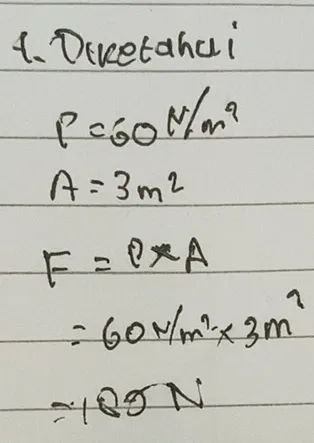 1. Diketahui
P = 60 N/m²
A = 3 m²
F = P x A
= 60 N/m² x 3 m²
= 180 N